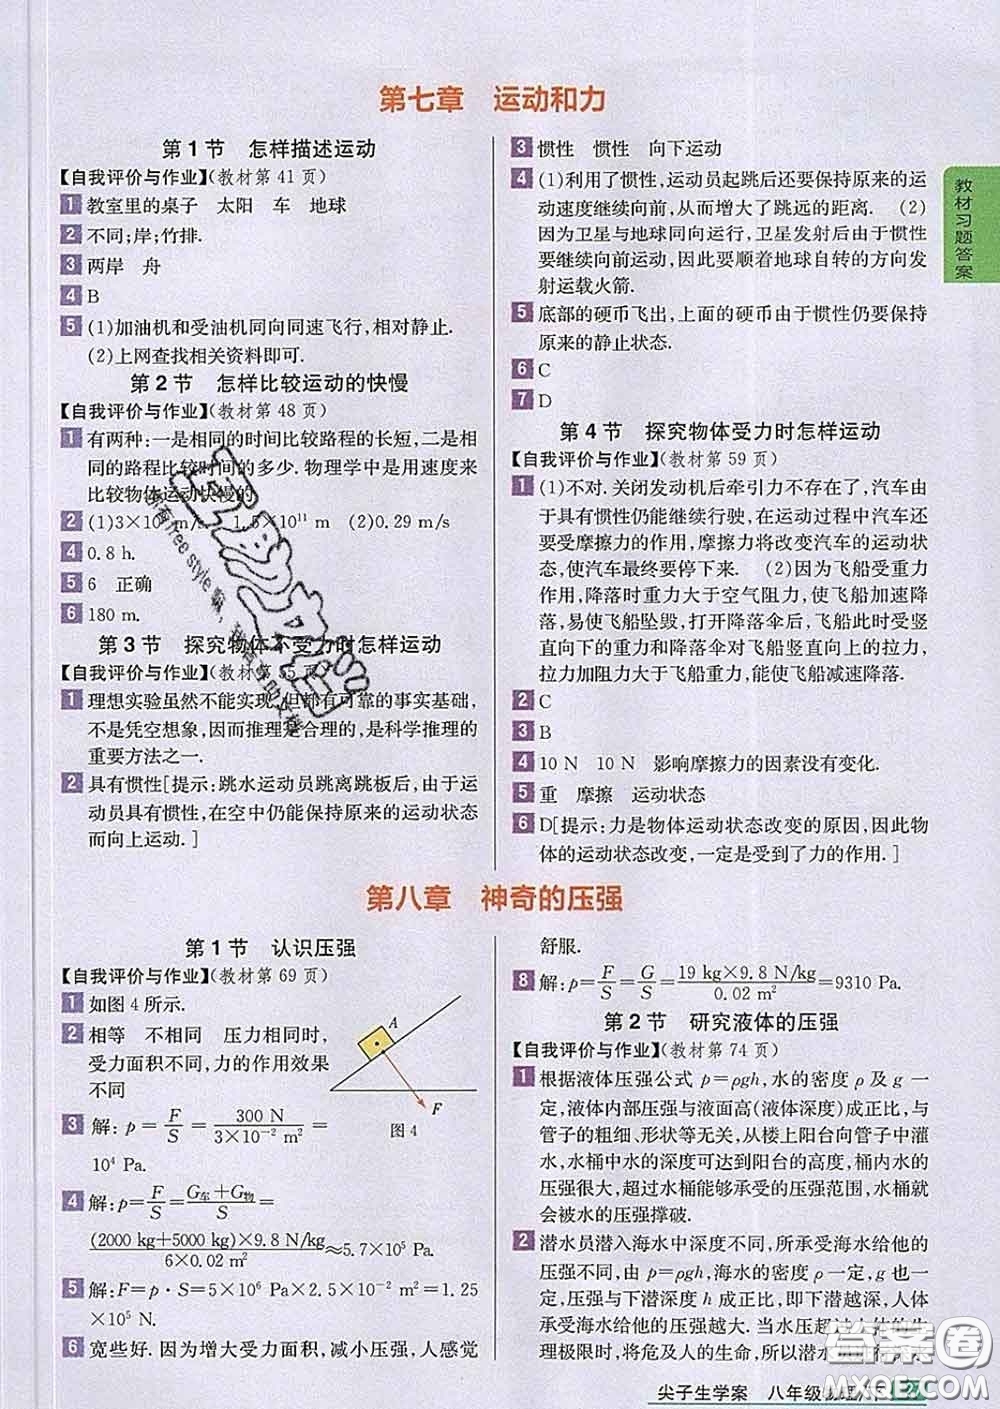 第七章 运动和力
第1节 怎样描述运动
【自我评价与作业】(教材第41页)
1 教室里的桌子 太阳 车 地球
2 不同;岸;竹排.
3 两岸 舟
4 B
5 (1)加油机和受油机同向同速飞行,相对静止.
(2)上网查找相关资料即可.
第2节 怎样比较运动的快慢
【自我评价与作业】(教材第48页)
1 有两种:一是相同的时间比较路程的长短,二是相
同的路程比较时间的多少.物理学中是用速度来
比较物体运动快慢的
2 (1)3×10 m/s 1.5×10¹¹ m (2)0.29 m/s
4 0.8 h.
5 6 正确
6 180 m.
第3节 探究物体不受力时怎样运动
【自我评价与作业】(教材第55页)
1 理想实验虽然不能实现,但都有可靠的事实基础,
不是凭空想象,因而推理是合理的,是科学推理的
重要方法之一.
2 具有惯性[提示:跳水运动员跳离跳板后,由于运
动员具有惯性,在空中仍能保持原来的运动状态
而向上运动.]
3 惯性 惯性 向下运动
4 (1)利用了惯性,运动员起跳后还要保持原来的运
动速度继续向前,从而增大了跳远的距离. (2)
因为卫星与地球同向运行,卫星发射后由于惯性
要继续向前运动,因此要顺着地球自转的方向发
射运载火箭.
5 底部的硬币飞出,上面的硬币由于惯性仍要保持
原来的静止状态.
6 C
7 D
第4节 探究物体受力时怎样运动
【自我评价与作业】(教材第59页)
1 (1)不对.关闭发动机后牵引力不存在了,汽车由
于具有惯性仍能继续行驶,在运动过程中汽车还
要受摩擦力的作用,摩擦力将改变汽车的运动状
态,使汽车最终要停下来. (2)因为飞船受重力
作用,降落时重力大于空气阻力,使飞船加速降
落,易使飞船坠毁,打开降落伞后,飞船此时受竖
直向下的重力和降落伞对飞船竖直向上的拉力,
拉力加阻力大于飞船重力,能使飞船减速降落.
2 C
3 B
4 10 N 10 N 影响摩擦力的因素没有变化.
5 重 摩擦 运动状态
6 D[提示:力是物体运动状态改变的原因,因此物
体的运动状态改变,一定是受到了力的作用.]
教材习题答案
第八章 神奇的压强
第1节 认识压强
【自我评价与作业】(教材第69页)
1 如图4所示.
2 相等 不相同 压力相同时,
受力面积不同,力的作用效果
不同
A
F
图4
3 解:p=F/S=300 N/(3×10⁻² m²)=
10⁴ Pa.
4 解:p=F/S=(G车+G物)/S=
(2000 kg+5000 kg)×9.8 N/kg/(6×0.02 m²)≈5.7×10⁵ Pa.
5 解:F=p·S=5×10⁶ Pa×2.5×10⁻² m²=1.25
×10⁵ N.
6 宽些好.因为增大受力面积,减小压强,人感觉
舒服.
8 解:p=F/S=G/S=19 kg×9.8 N/kg/(0.02 m²)=9310 Pa.
第2节 研究液体的压强
【自我评价与作业】(教材第74页)
1 根据液体压强公式 p=ρgh,水的密度 ρ 及 g 一
定,液体内部压强与液面高(液体深度)成正比,与
管子的粗细、形状等无关,从楼上阳台向管子中灌
水,水桶中水的深度可达到阳台的高度,桶内水的
压强很大,超过水桶能够承受的压强范围,水桶就
会被水的压强撑破.
2 潜水员潜入海水中深度不同,所承受海水给他的
压强不同,由 p=ρgh,海水的密度 ρ 一定,g 也一
定,压强与下潜深度 h 成正比,即下潜越深,人体
承受海水给他的压强越大.当水压超过人的生
理极限时,将危及人的生命,所以潜水
尖子生学案 八年级物理
答案圈
MXQE.COM